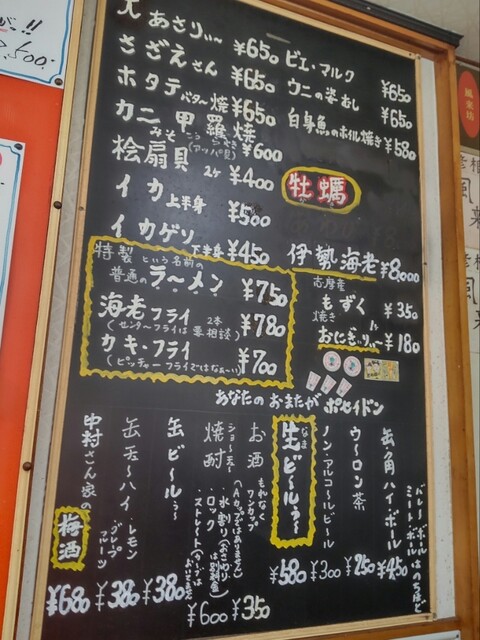 大あさりぃ~ ¥650
さざえさん ¥650
ホタテバタ~焼 ¥650
カニみそ甲羅焼 こうらやき ¥600
桧扇貝 (アッパ貝) 2ヶ ¥400
イカ上半身 ¥500
イカゲソ 下半身 ¥450
特製 という名前の
普通のラ~メン ¥750
海老フライ 2本 ¥780
(センターフライは要相談)
カキ・フライ ¥700
(ピッチャーフライではなぁ~い)
ビエ・マルク ¥650
ウニの姿むし ¥650
白身魚のホイル焼き ¥580
牡蠣
伊勢海老 ¥8,000
志摩産
もずく ¥350
焼きおにぎりぃ~ ¥180
あなたのおまたがポセイドン
バレーボール
ミートボールはのちほど
缶角ハイ・ボール ¥450
ウ~ロン茶 ¥250
ノン・アルコ~ル・ビ~ル ¥300
生ビ~ルぅ~ なま ¥580
お酒 もれなくワンカップ
(Aカップはありません) ¥350
焼酎 ショ~チュ~
・水割り(おさわりは別料金)
・ロック
・ストレート ¥600
缶ビ~ルぅ~ ¥380
缶チュ~ハイ・レモン
グレープフルーツ ¥380
中村さん家の梅酒 ¥680
が!!
風来坊